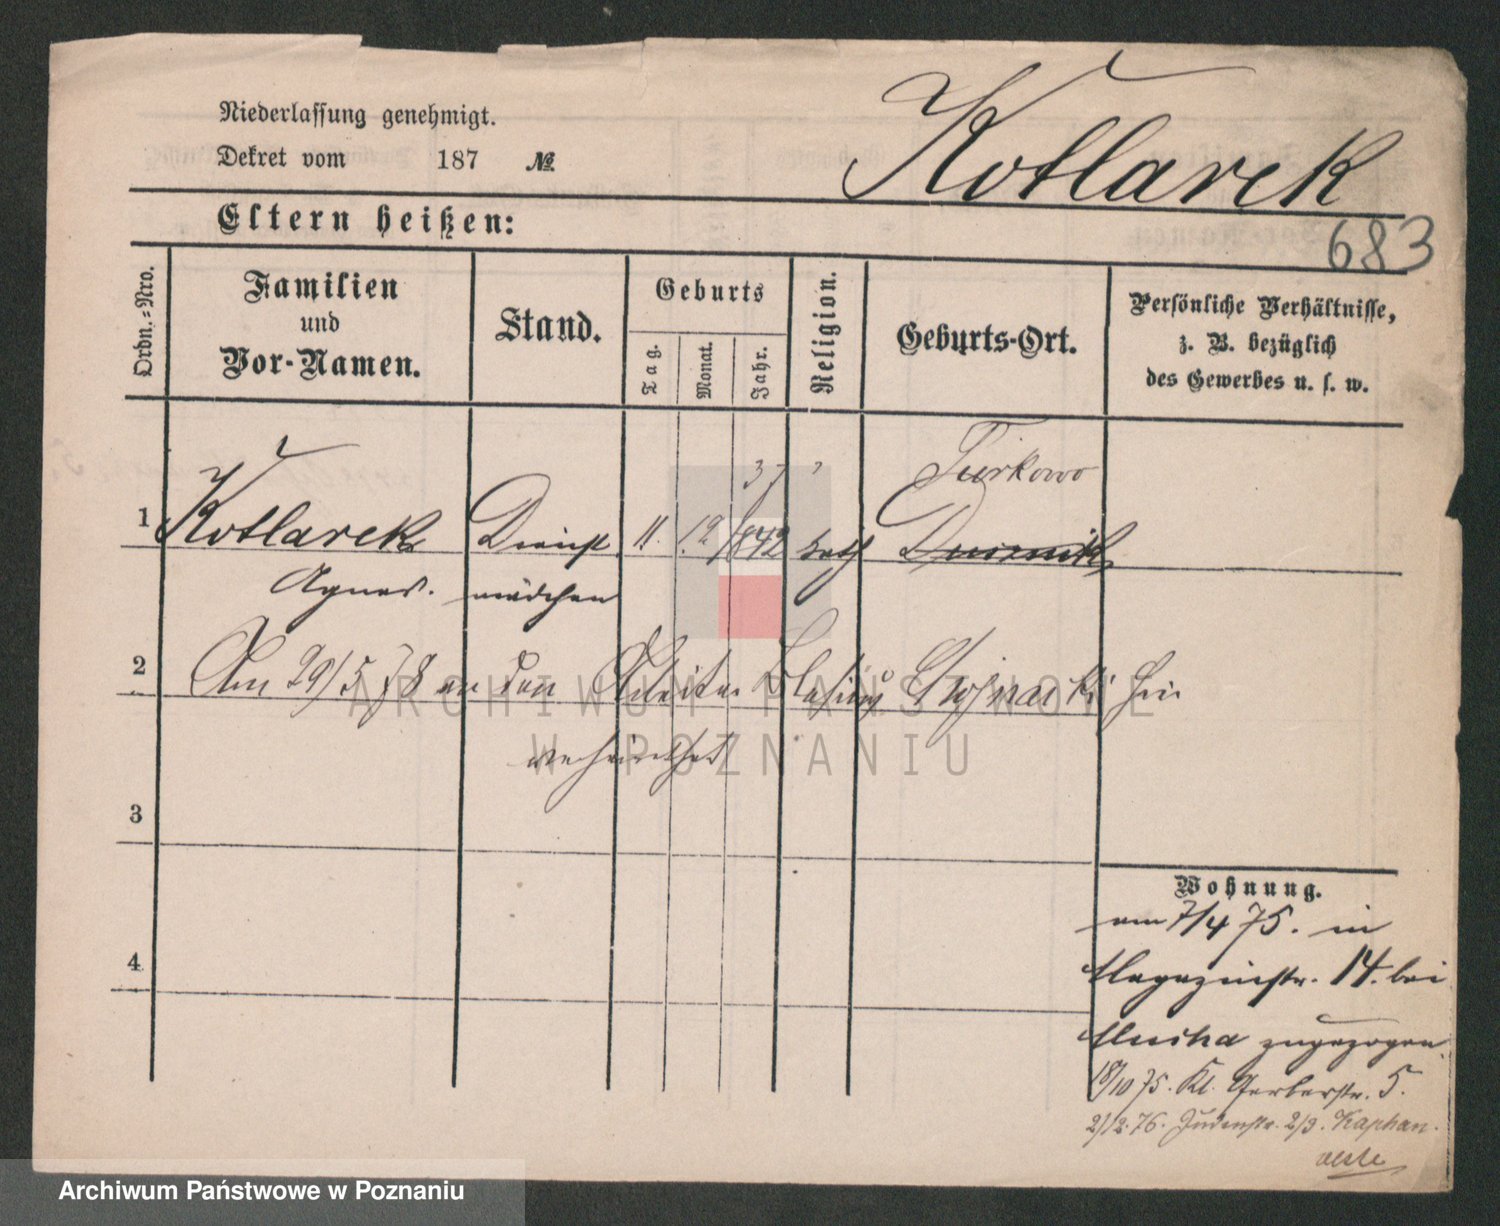 Niederlassung genehmigt.
Dekret vom 187 №
Kotlarek
Eltern heißen:
683
Ordn.-Nro.
Familien
und
Vor-Namen.
Stand.
Geburts
Tag.
Monat.
Jahr.
Religion.
Geburts-Ort.
Persönliche Verhältnisse,
z. B. bezüglich
des Gewerbes u. s. w.
37 Turkowo
1 Kotlarek Dienst 11. 12 1842 kath Dusznik
Agnes. mädchen
2 Am 29/5 78 an den Arbeiter Blasius hier
verheirathet
3
4
Wohnung.
am 7/4 75. in
Magazinstr. 14. bei
zugezogen.
18/10 75. Kl. Gerberstr. 5.
2/12. 76. Judenstr. 2/3. Kaphan.
ARCHIWUM PAŃSTWOWE
W POZNANIU
Archiwum Państwowe w Poznaniu